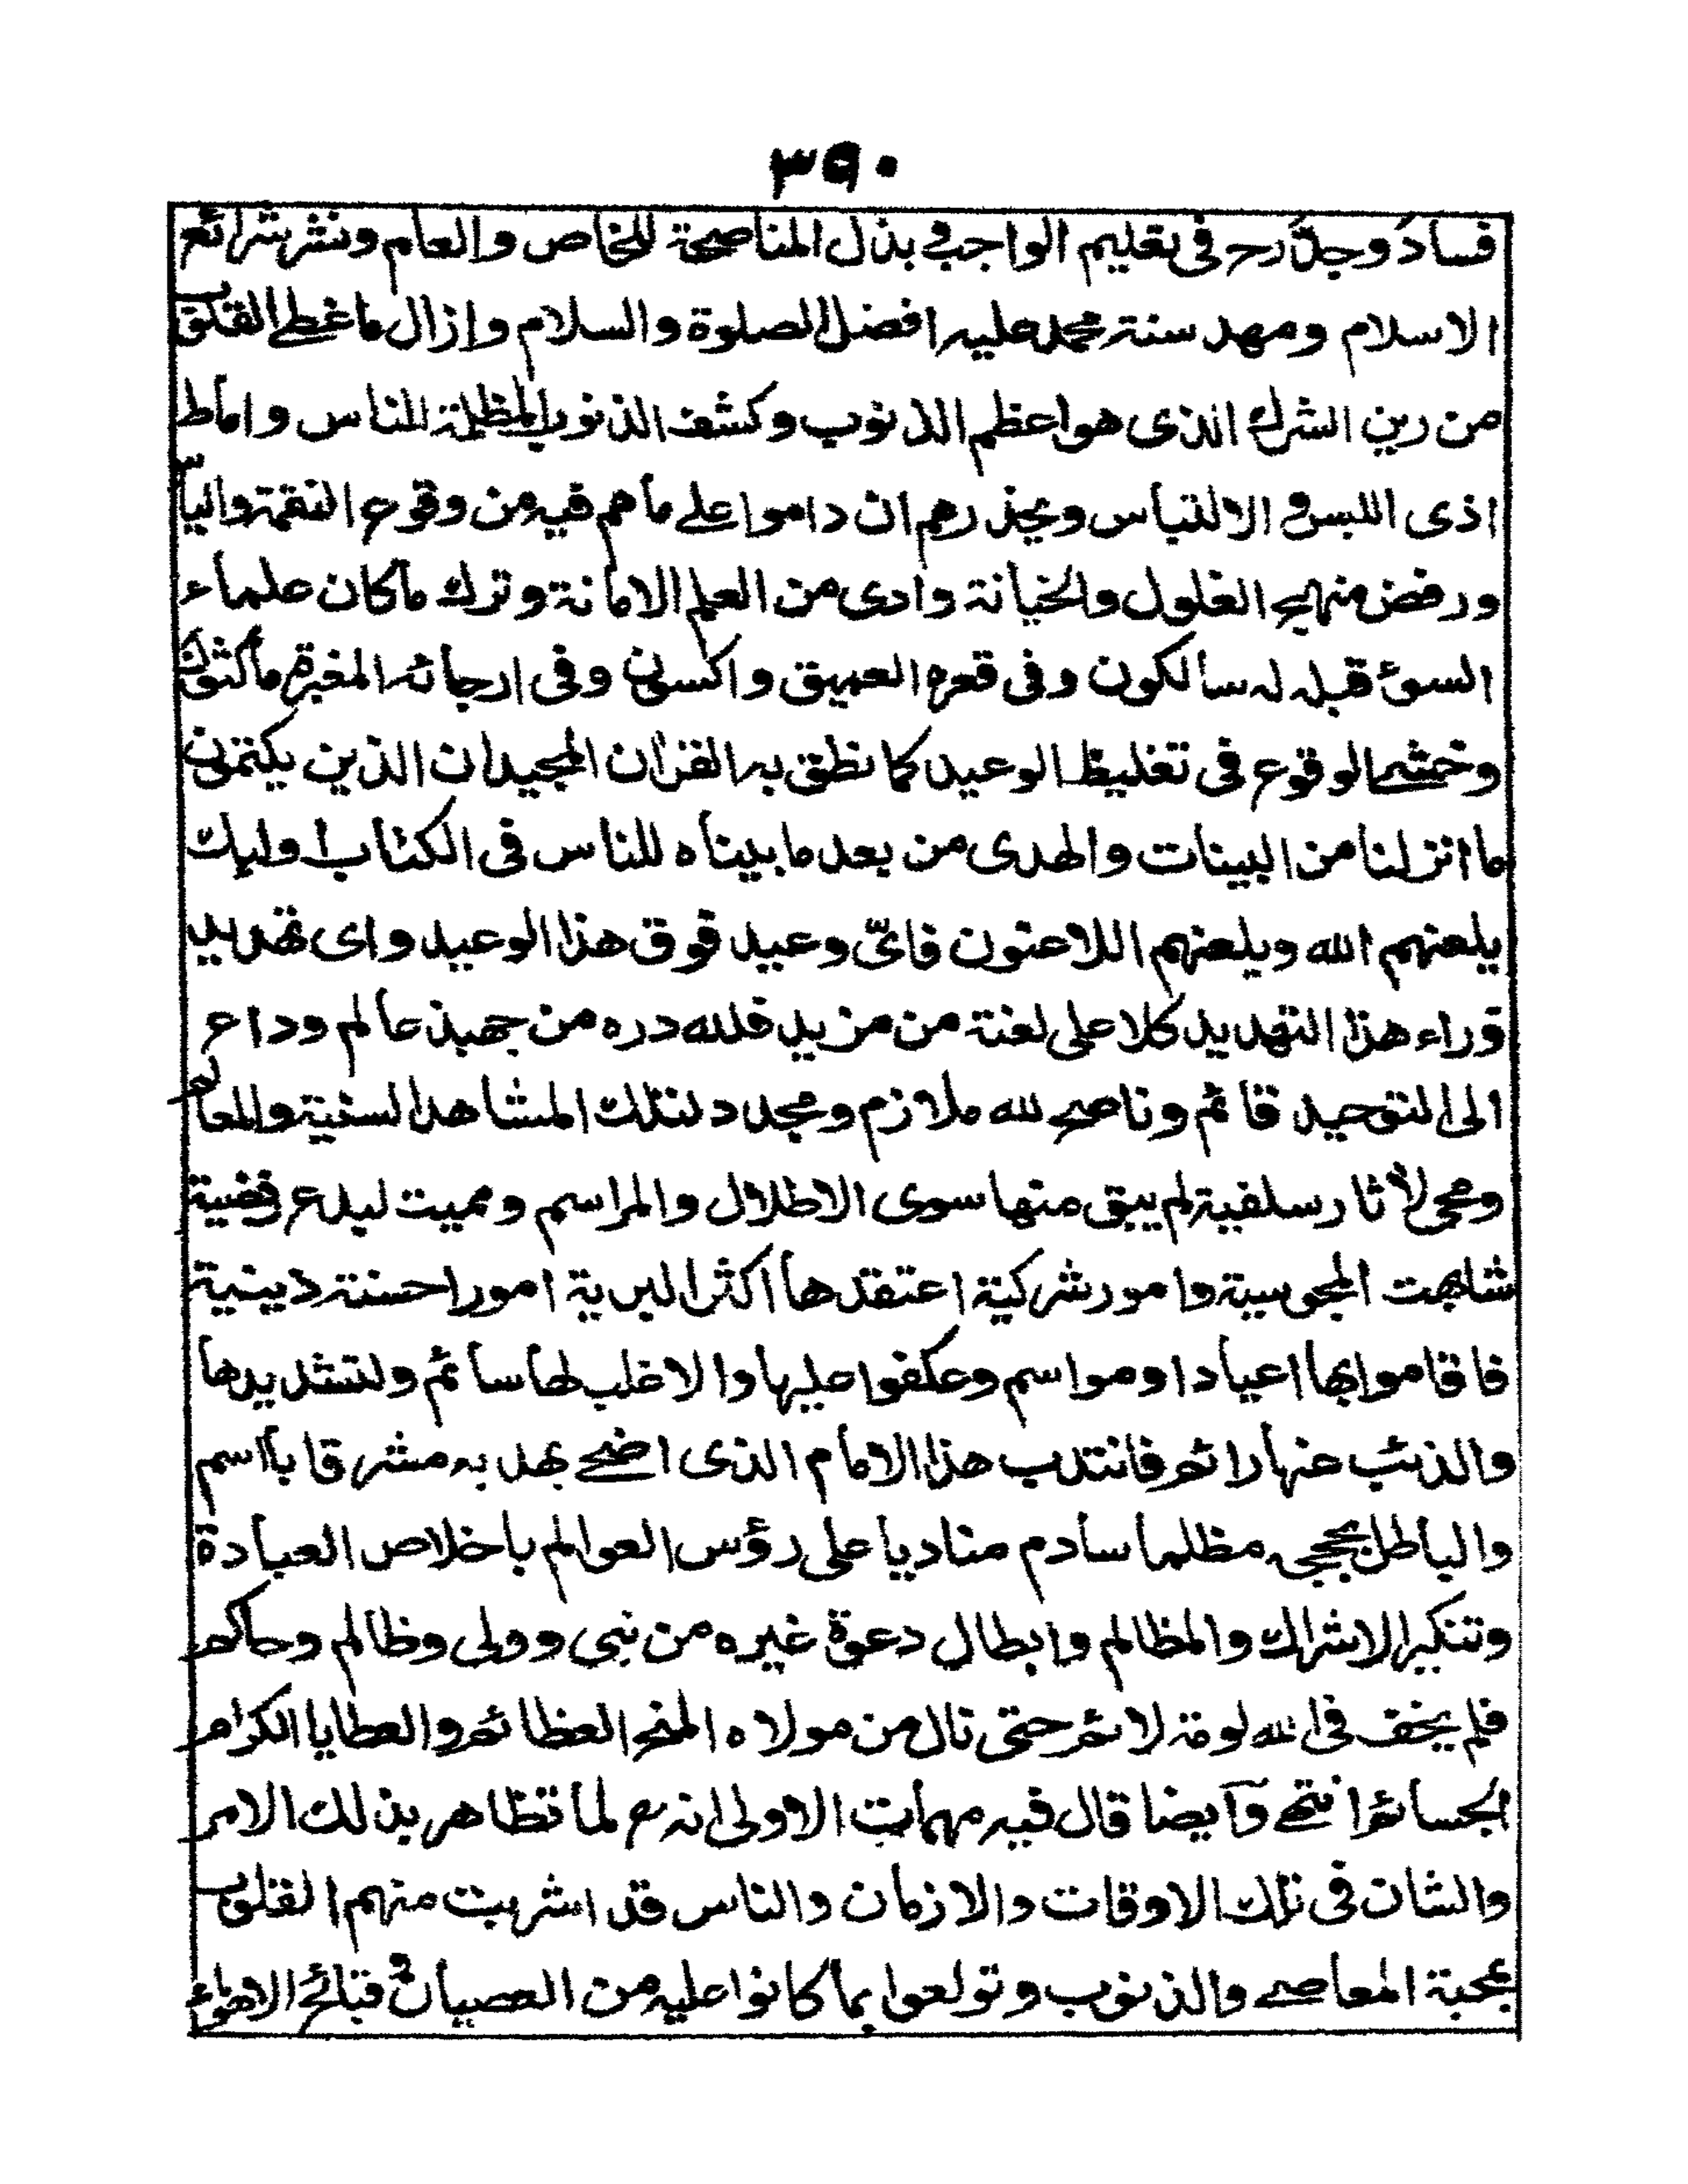 ٣٩٠
فساد وجد رح فى تعليم الواجب فى بذل المناصحة للخاص والعام ونشر شرائع
الاسلام ومهد سنة محمد عليه افضل الصلوة والسلام وازال ما غطى القلوب
من رين الشرك الذى هو اعظم الذنوب وكشف الذنوب المظلمة للناس واماط
اذى اللبس و الالتباس ويحذرهم ان داموا على ما هم فيه من وقوع النقمة والباس
ورفض منهج الغلول والخيانة وادى من العلم الامانة وترك ما كان علماء
السوئ قبله له سالكون وفى قعره العميق واكسون وفى ارجائه المغبرة ماكثون
وخشى الوقوع فى تغليظ الوعيد كما نطق به القرآن المجيد ان الذين يكتمون
ما انزلنا من البينات والهدى من بعد ما بيناه للناس فى الكتاب اولئك
يلعنهم الله ويلعنهم اللاعنون فاىّ وعيد فوق هذا الوعيد واى تهديد
وراء هذا التهديد كلا على لعنة من مزيد فلله دره من جهبذ عالم وداع
الى التوحيد قائم وناصح لله ملازم ومجدد لتلك المشاهد السنية والمعالم
ومحى لآثار سلفية لم يبق منها سوى الاطلال والمراسم ومميت لبدع رفضية
شابهت المجوسية وامور شركية اعتقدها اكثر البرية امورا حسنة دينية
فاقاموا بها اعيادا ومواسم وعكفوا عليها والاغلب لها سائم ولتشديدها
والذئب عنها رائم فانتدب هذا الامام الذى اضحى بهد به مشرقا باسم
والباطل بحججه مظلما سادم مناديا على رؤس العوالم باخلاص العبادة
وتنكير الاشراك والمظالم وابطال دعوة غيره من نبى وولى وظالم وحاكم
فلم يخف فى الله لومة لائم حتى نال من مولاه المنح العظائم والعطايا الكرام
الجسائم انتهى وآيضا قال فيه مهمات الاولى انه رح لما تظاهر بذلك الامر
والشان فى تلك الاوقات والازمان والناس قد اشربت منهم القلوب
بمحبة المعاصى والذنوب وتولعوا بما كانوا عليه من العصيان و قبائح الاهواء